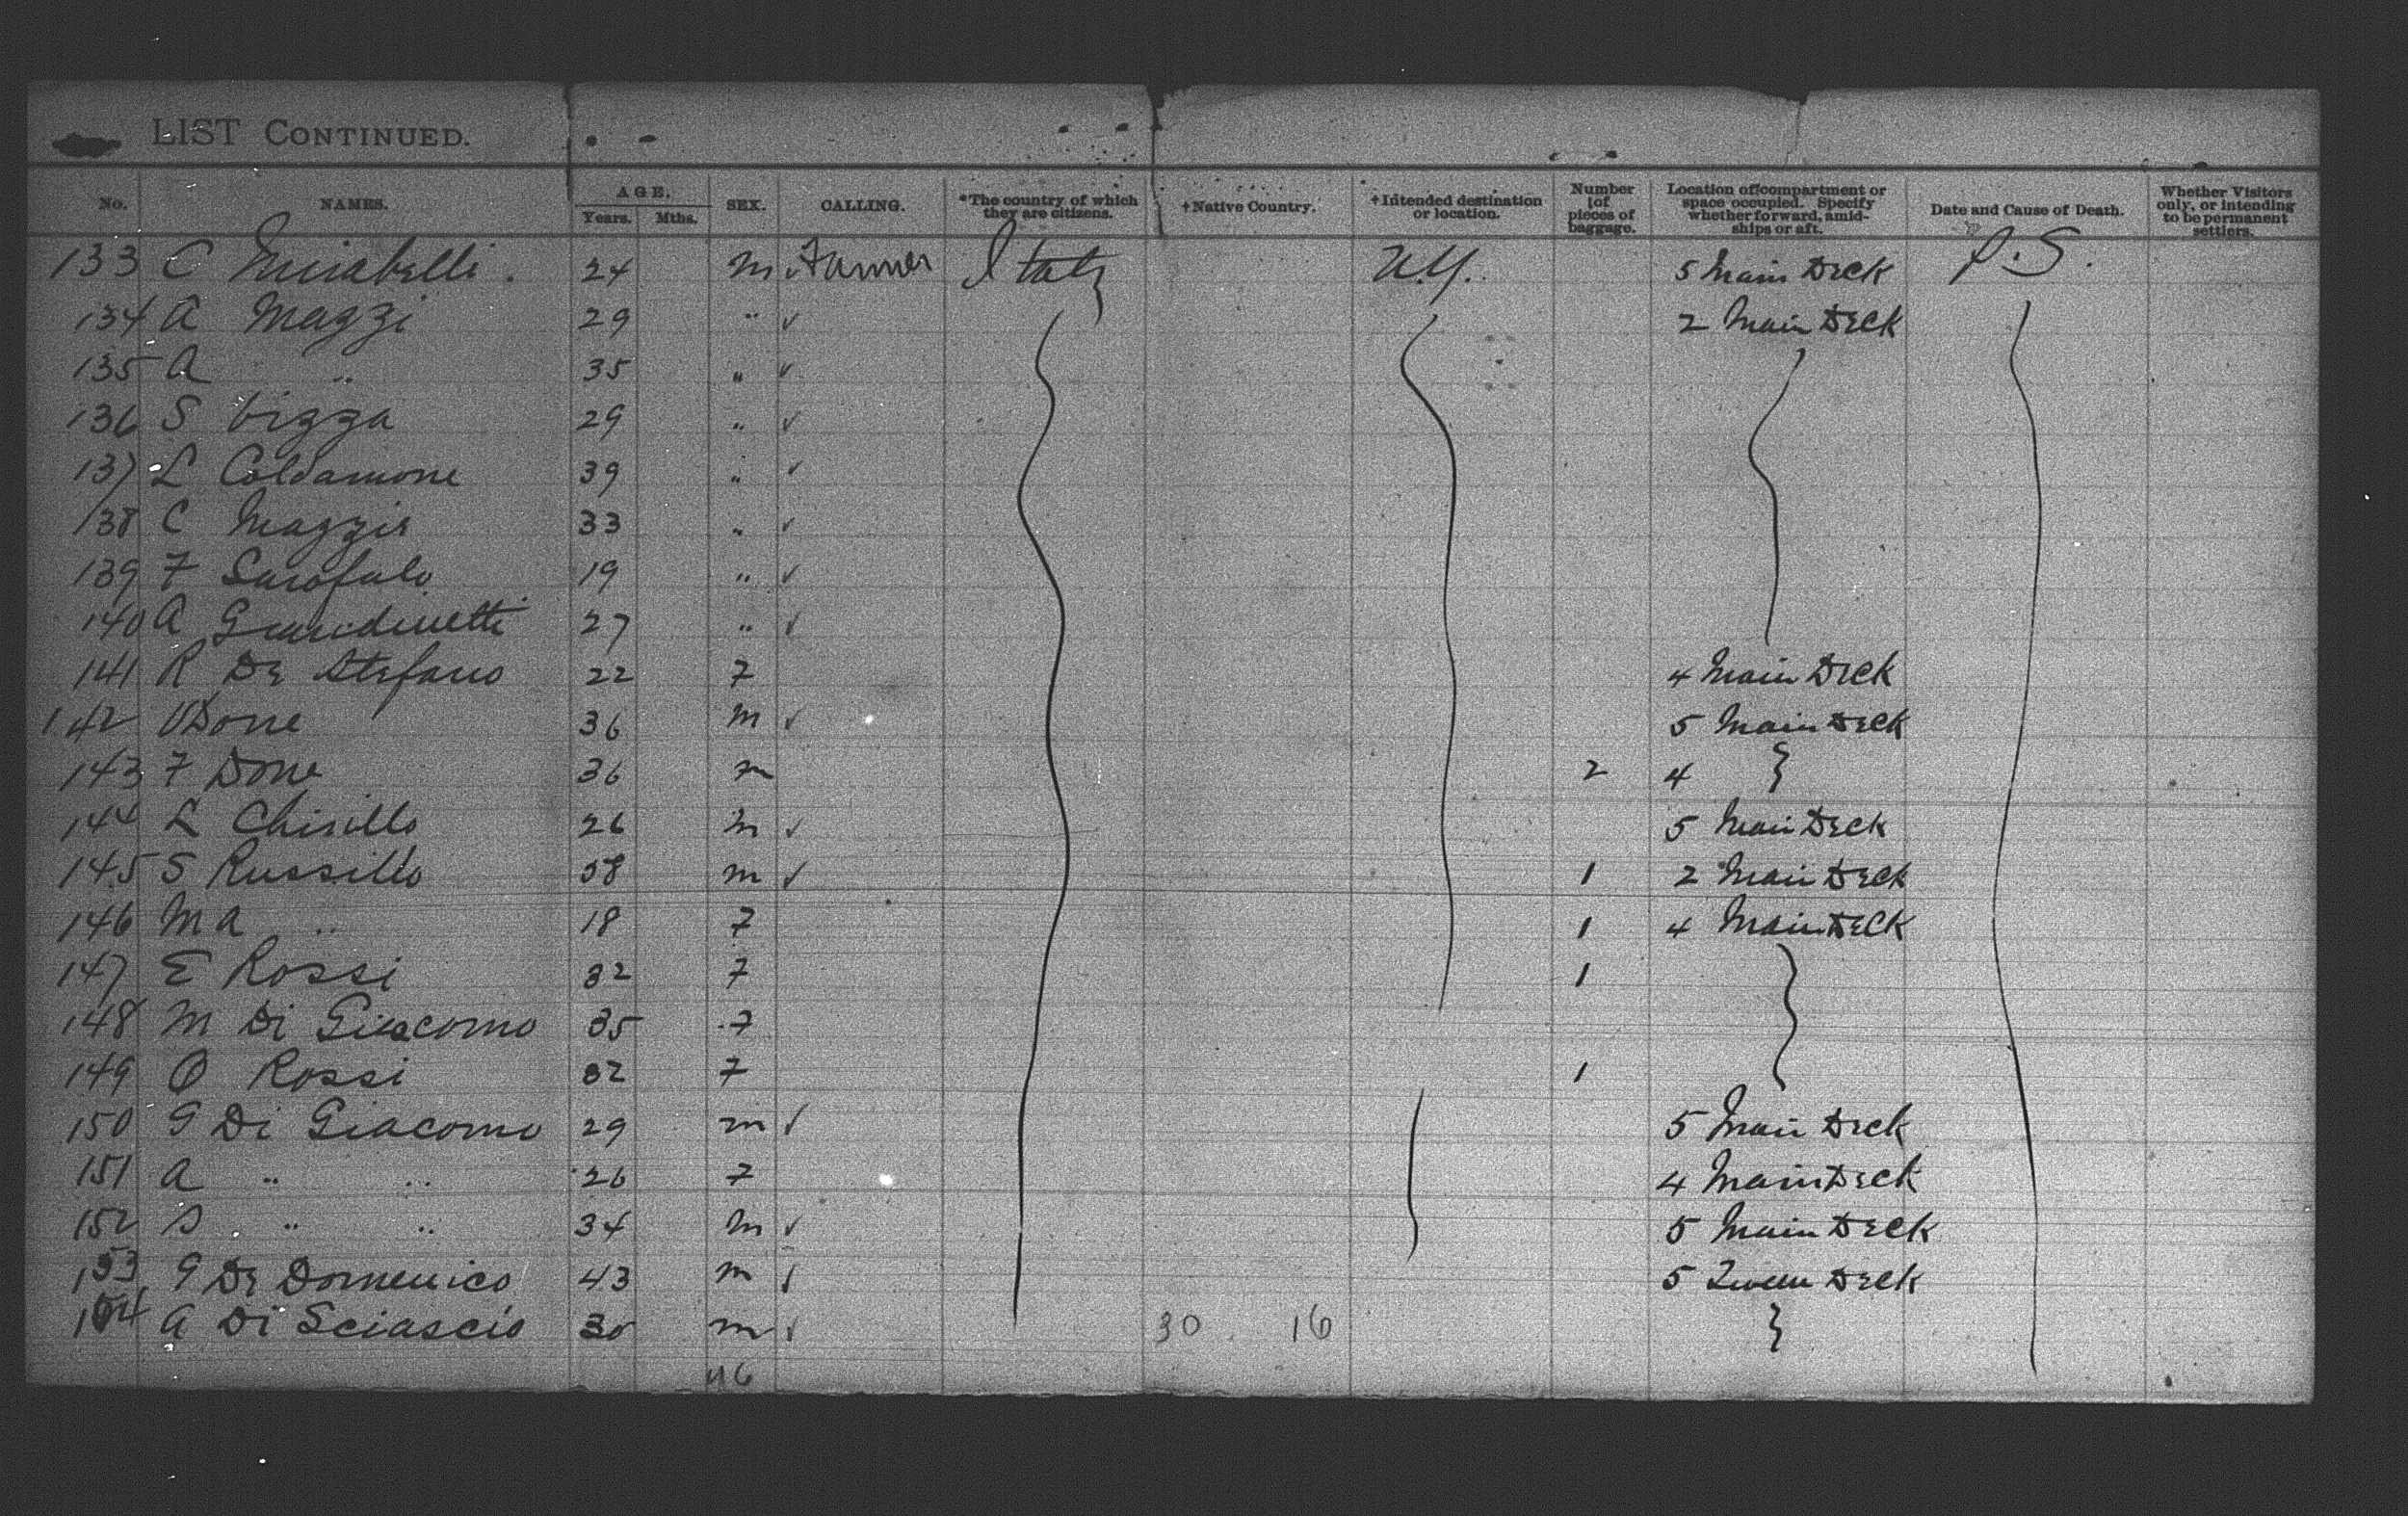 LIST CONTINUED.
No. NAMES. AGE. Years. Mths. SEX. CALLING. *The country of which they are citizens. +Native Country. +Intended destination or location. Number of pieces of baggage. Location of compartment or space occupied. Specify whether forward, amidships or aft. Date and Cause of Death. Whether Visitors only, or intending to be permanent settlers.
133 C Mirabelli. 24 m Farmer Italy N.Y. 5 Main Deck P.S.
134 A Mazzi 29 " ✓ 2 Main Deck
135 A " 35 " ✓
136 S Vizza 29 " ✓
137 L Coldamone 39 " ✓
138 C 33 " ✓
139 F 19 " ✓
140 A 27 " ✓
141 R De Stefano 22 F 4 Main Deck
142 Done 36 m ✓ 5 Main Deck
143 F Done 36 m 2 4 }
144 L Chirillo 26 m ✓ 5 Main Deck
145 S Russillo 58 m ✓ 1 2 Main Deck
146 Ma " 18 F 1 4 Main Deck
147 E Rossi 32 F 1
148 M Di Giacomo 35 F
149 O Rossi 32 F 1
150 G Di Giacomo 29 m ✓ 5 Main Deck
151 A " " 26 F 4 Main Deck
152 S " " 34 m ✓ 5 Main Deck
153 G De Domenico 43 m ✓ 5 Tween Deck
154 A Di Sciascio 30 m ✓ 30 16 }